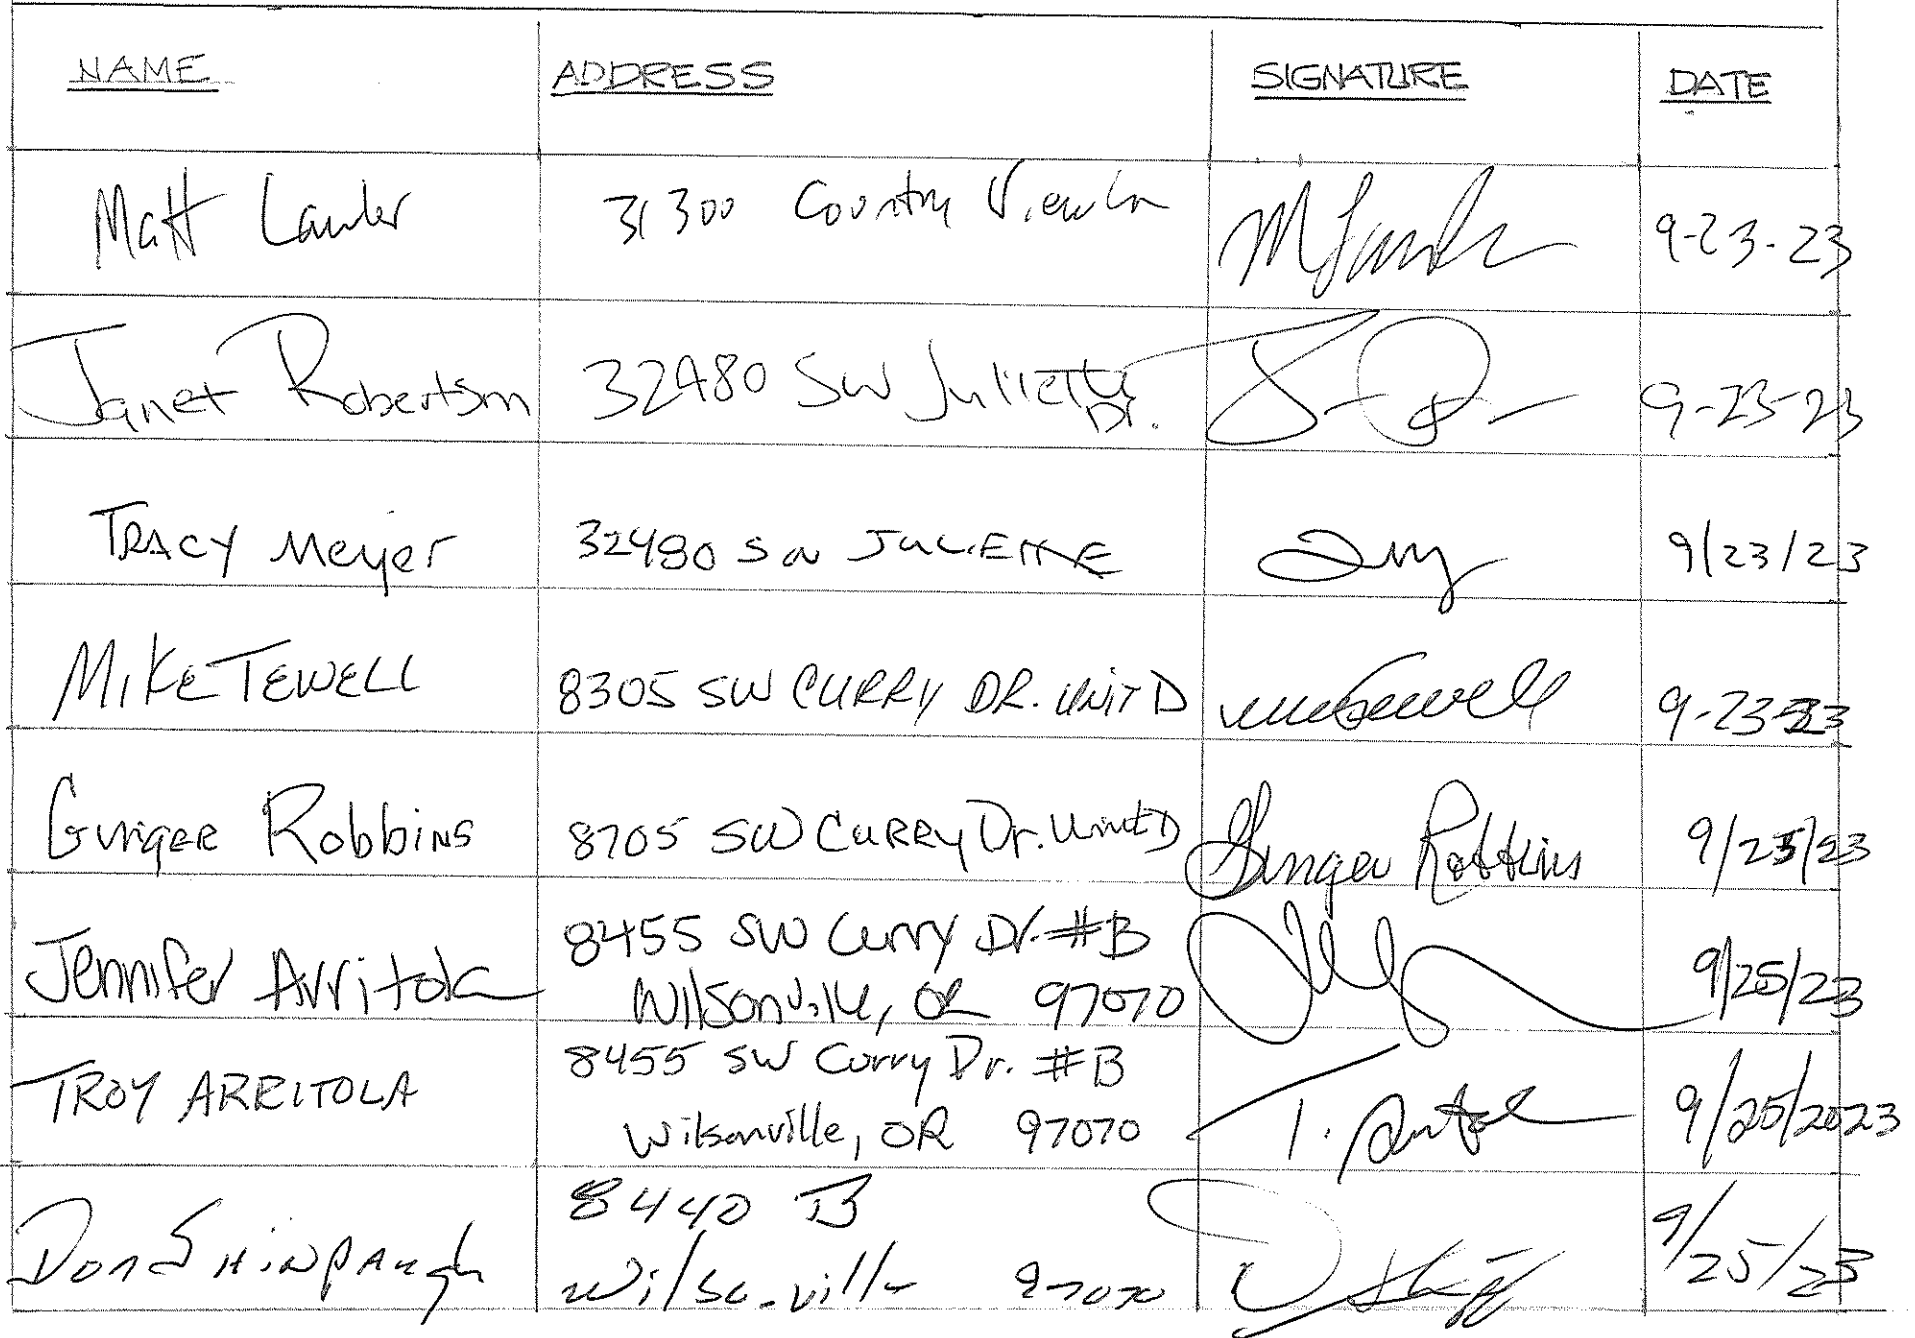 NAME ADDRESS SIGNATURE DATE
Matt Lawler 31300 Country View Ln 9-23-23
Janet Robertson 32480 SW Juliette Dr. 9-23-23
TRACY Meyer 32480 SW JULIETTE 9/23/23
MIKE TEWELL 8305 SW CURRY DR. UNIT D 9-23-23
GINGER Robbins 8705 SW CURRY Dr. Unit D Ginger Robbins 9/25/23
Jennifer Arritola 8455 SW Curry Dr. #B 9/25/23
Wilsonville, OR 97070
TROY ARRITOLA 8455 SW Curry Dr. #B 9/25/2023
Wilsonville, OR 97070
Don SHINPAugh 8440 B 9/25/23
Wilsonville 97070